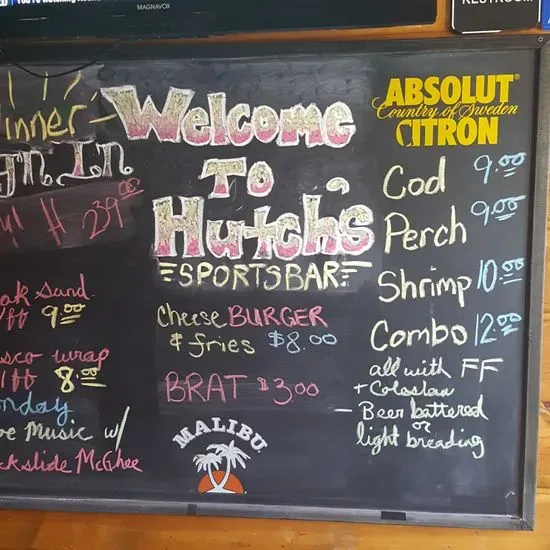 MAGNAVOX
Winner
Ign In
239.00
Welcome
To
Hutch's
SPORTSBAR
Cheese BURGER
& fries $8.00
BRAT $3.00
MALIBU
Sand.
9.00
wrap
8.00
Music w/
McGhee
ABSOLUT
Country of Sweden
CITRON
Cod 9.00
Perch 9.00
Shrimp 10.00
Combo 12.00
all with FF
+ Coleslaw
- Beer battered
or
light breading